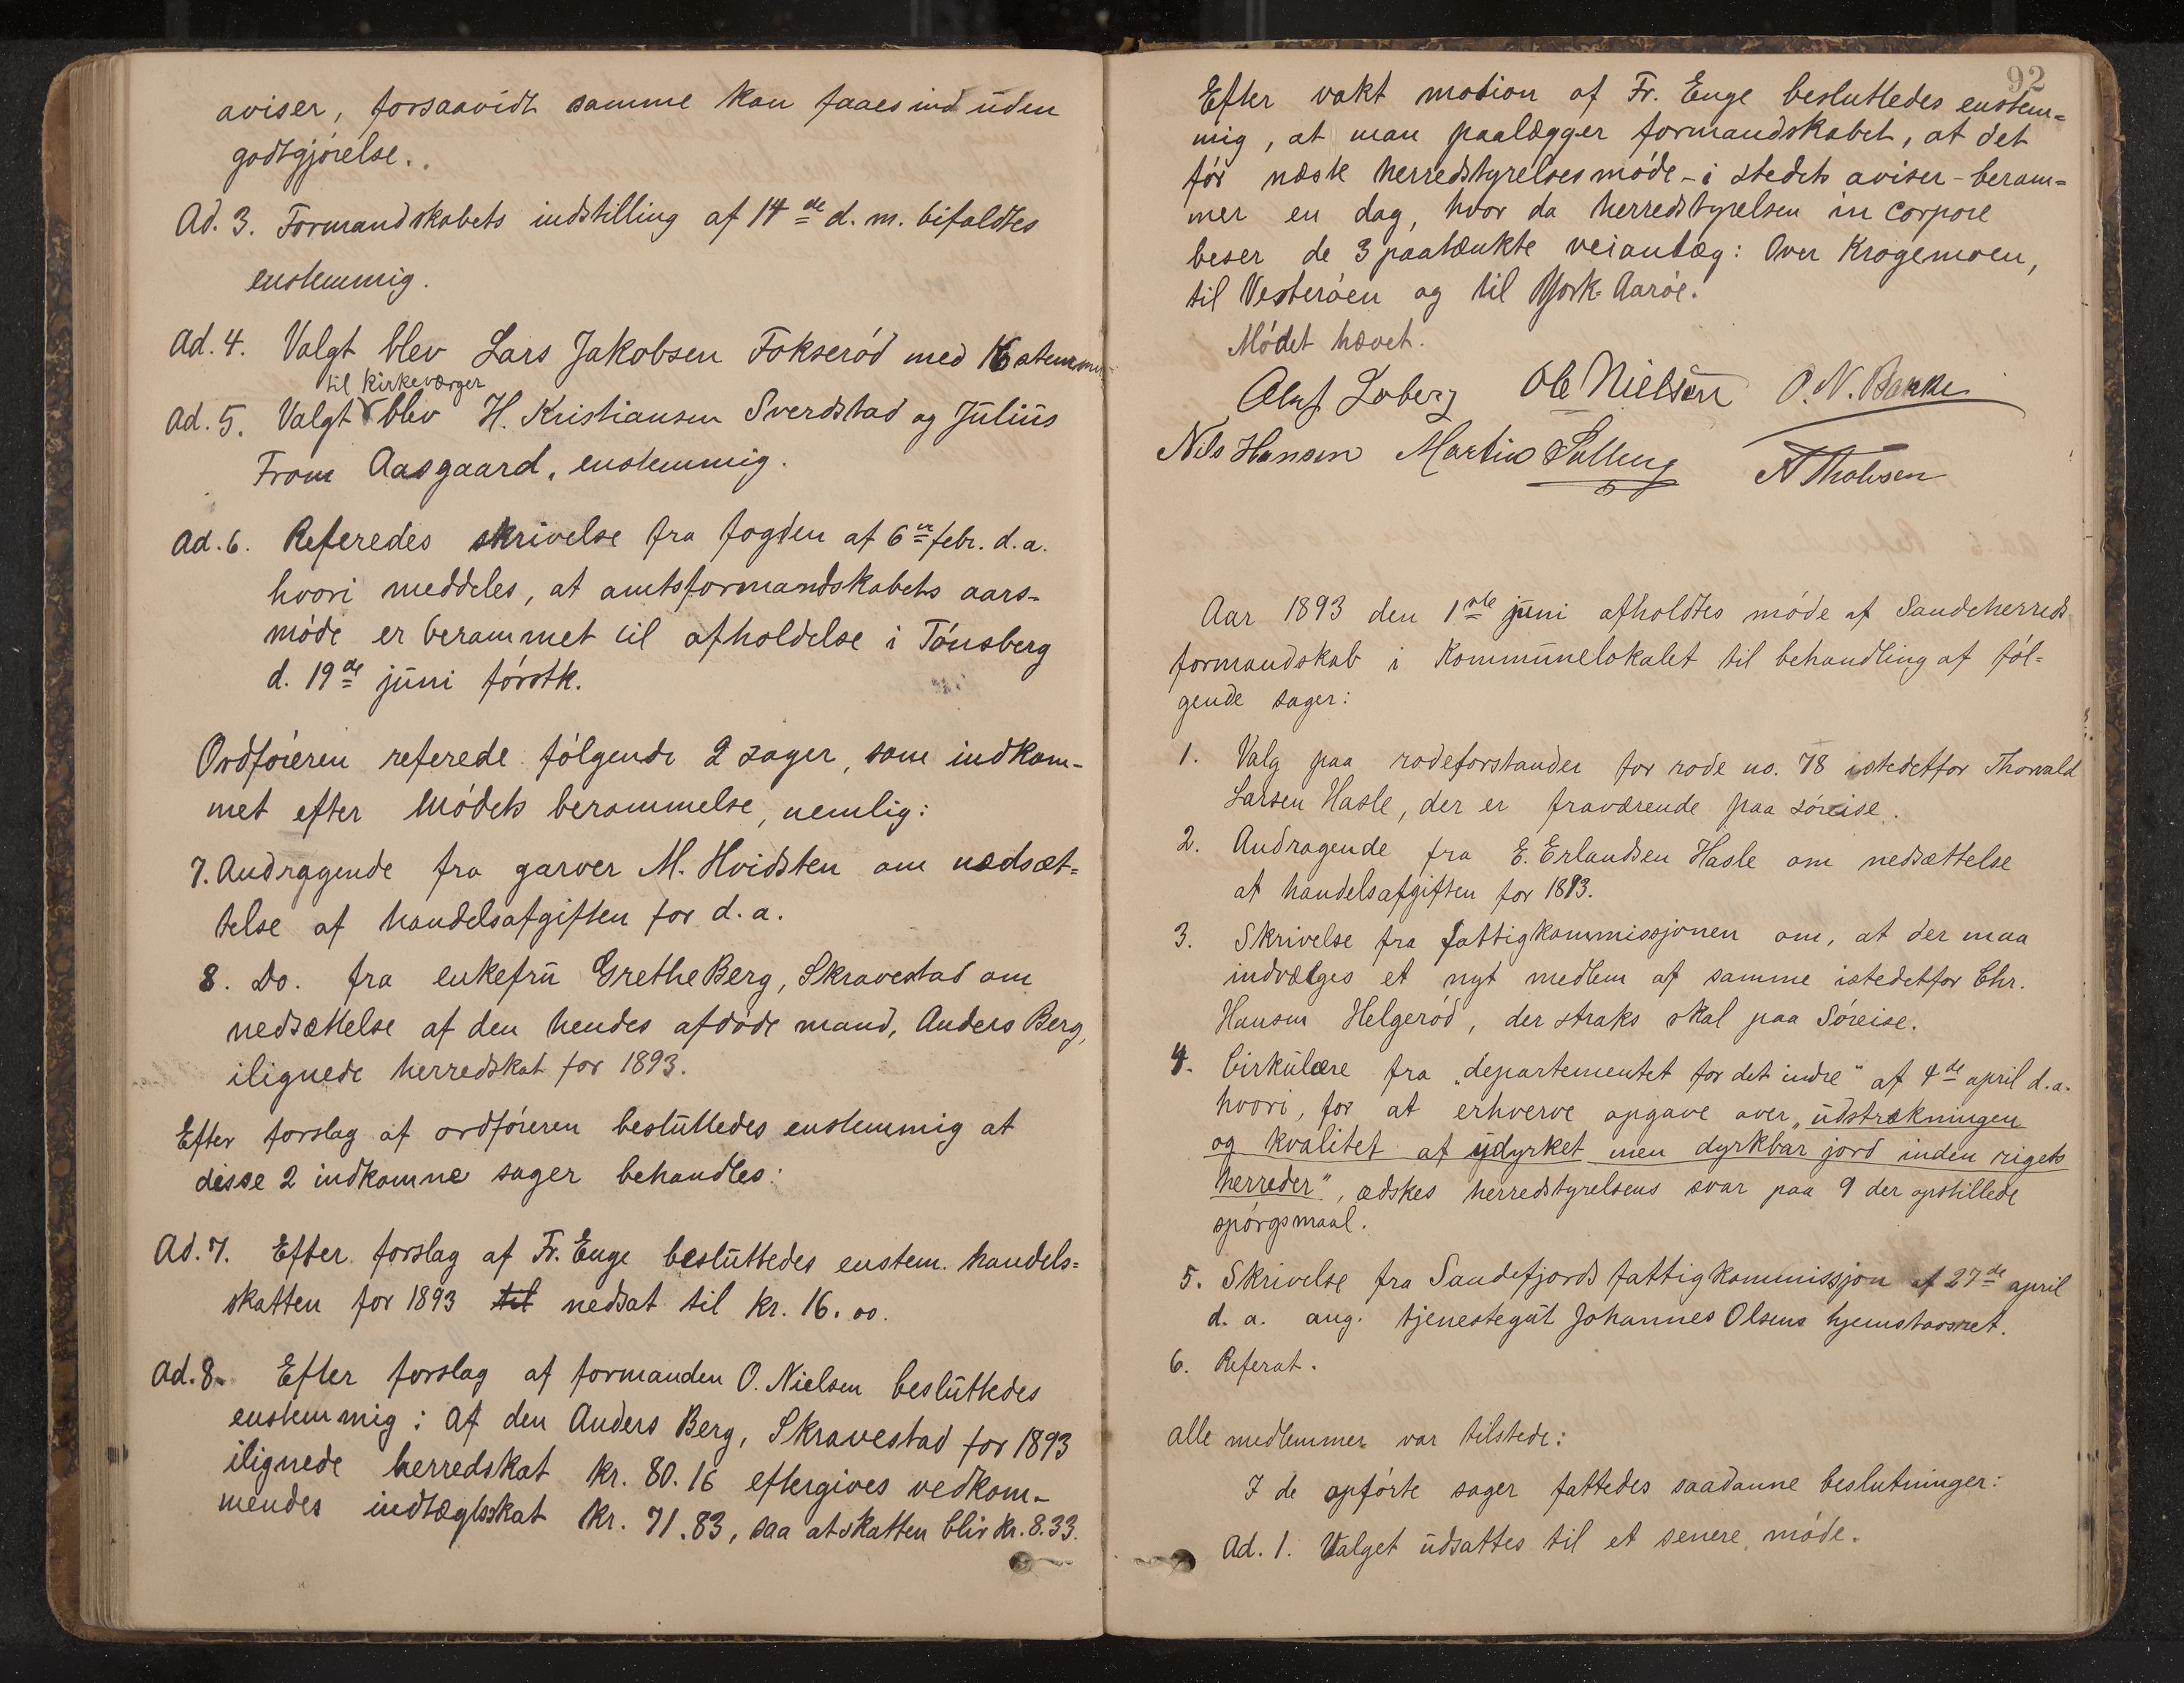 aviser, forsaavidt samme kan faaes ind uden
godtgjørelse.
Ad. 3. Formandskabets indstilling af 14de d. m. bifaldtes
enstemmig.
Ad. 4. Valgt blev Lars Jakobsen Fokserød med 16 stemmer
til kirkeværger
Ad. 5. Valgt blev H. Kristiansen Sverdstad og Julius
From Aasgaard, enstemmig.
Ad. 6. Referedes skrivelse fra fogden af 6te febr. d. a.
hvori meddeles, at amtsformandskabets aars-
møde er berammet til afholdelse i Tønsberg
d. 19de juni førstk.
Ordføreren referede følgende 2 sager, som indkom-
met efter mødets berammelse, nemlig:
7. Andragende fra garver M. Hvidsten om nedsæt=
telse af handelsafgiften for d. a.
8. Do. fra enkefru Grethe Berg, Skravestad om
nedsættelse af den hendes afdøde mand, Anders Berg,
ilignede herredskat for 1893.
Efter forslag af ordføreren besluttedes enstemmig at
disse 2 indkomne sager behandles:
Ad. 7. Efter forslag af Fr. Enge besluttedes enstem. handels=
skatten for 1893 til nedsat til kr. 16.00.
Ad. 8. Efter forslag af formanden O. Nielsen besluttedes
enstemmig: Af den Anders Berg, Skravestad for 1893
ilignede herredskat kr. 80.16 eftergives vedkom-
mendes indtægtsskat kr. 71.83, saa at skatten blir kr. 8.33.
92
Efter vakt motion af Fr. Enge besluttedes enstem=
mig, at man paalægger formandskabet, at det
før næste herredstyrelsesmøde - i stedets aviser - beram=
mer en dag, hvor da herredstyrelsen in corpore
beser de 3 paatænkte veianlæg: Over Krogemoen,
til Vesterøen og til York-Aarøe.
Mødet hævet.
Oluf Loberg Ole Nielsen O. N. Bakke
Nils Hansen Martin
Aar 1893 den 1ste juni afholdtes møde af Sandeherreds
formandskab i Kommunelokalet til behandling af føl=
gende sager:
1. Valg paa rodeforstander for rode no. 78 istedetfor Thorvald
Larsen Hasle, der er fraværende paa søreise.
2. Andragende fra E. Erlandsen Hasle om nedsættelse
af handelsafgiften for 1893.
3. Skrivelse fra fattigkommissjonen om, at der maa
indvælges et nyt medlem af samme istedetfor Chr.
Hansen Helgerød, der straks skal paa Søreise.
4. Cirkulære fra „departementet for det indre" af 4de april d. a.
hvori, for at erhverve opgave over „udstrækningen
og kvalitet af udyrket men dyrkbar jord inden rigets
herreder", ædskes herredstyrelsens svar paa 9 der opstillede
spørgsmaal.
5. Skrivelse fra Sandefjords fattigkommissjon af 27de april
d. a. ang. tjenestegut Johannes Olsens hjemstavnsret.
6. Referat.
alle medlemmer var tilstede:
I de opførte sager fattedes saadanne beslutninger:
Ad. 1. Valget udsattes til et senere møde.